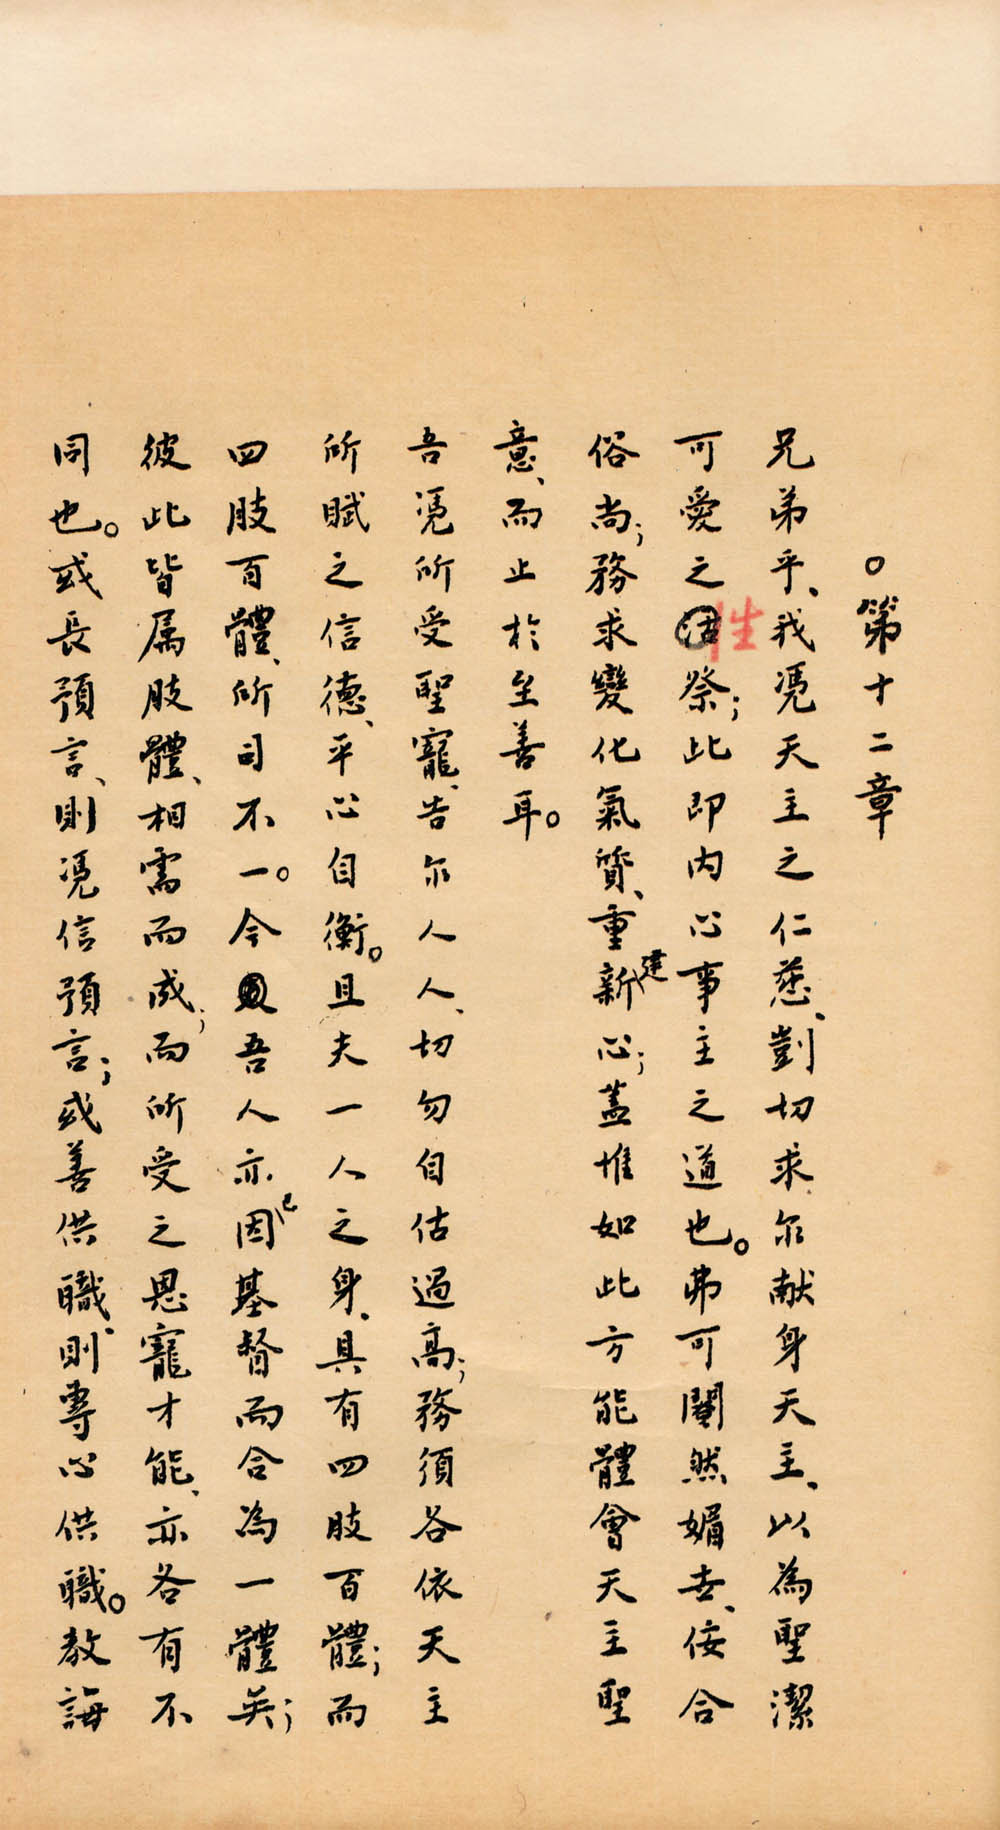 ○第十二章
兄弟乎、我凴天主之仁慈、剴切求尔献身天主、以為聖潔
可愛之牲祭；此即内心事主之道也。弗可閹然媚世、佞合
俗尚；務求變化氣質、重建新心；蓋惟如此方能體會天主聖
意、而止於至善耳。
吾凴所受聖寵、告尔人人、切勿自估過高；務須各依天主
所賦之信德、平心自衡。且夫一人之身、具有四肢百體；而
四肢百體、所司不一。今吾人亦已因基督而合為一體矣；
彼此皆属肢體、相需而成；而所受之恩寵才能、亦各有不
同也。或長預言、則凴信預言；或善供職、則專心供職。教誨